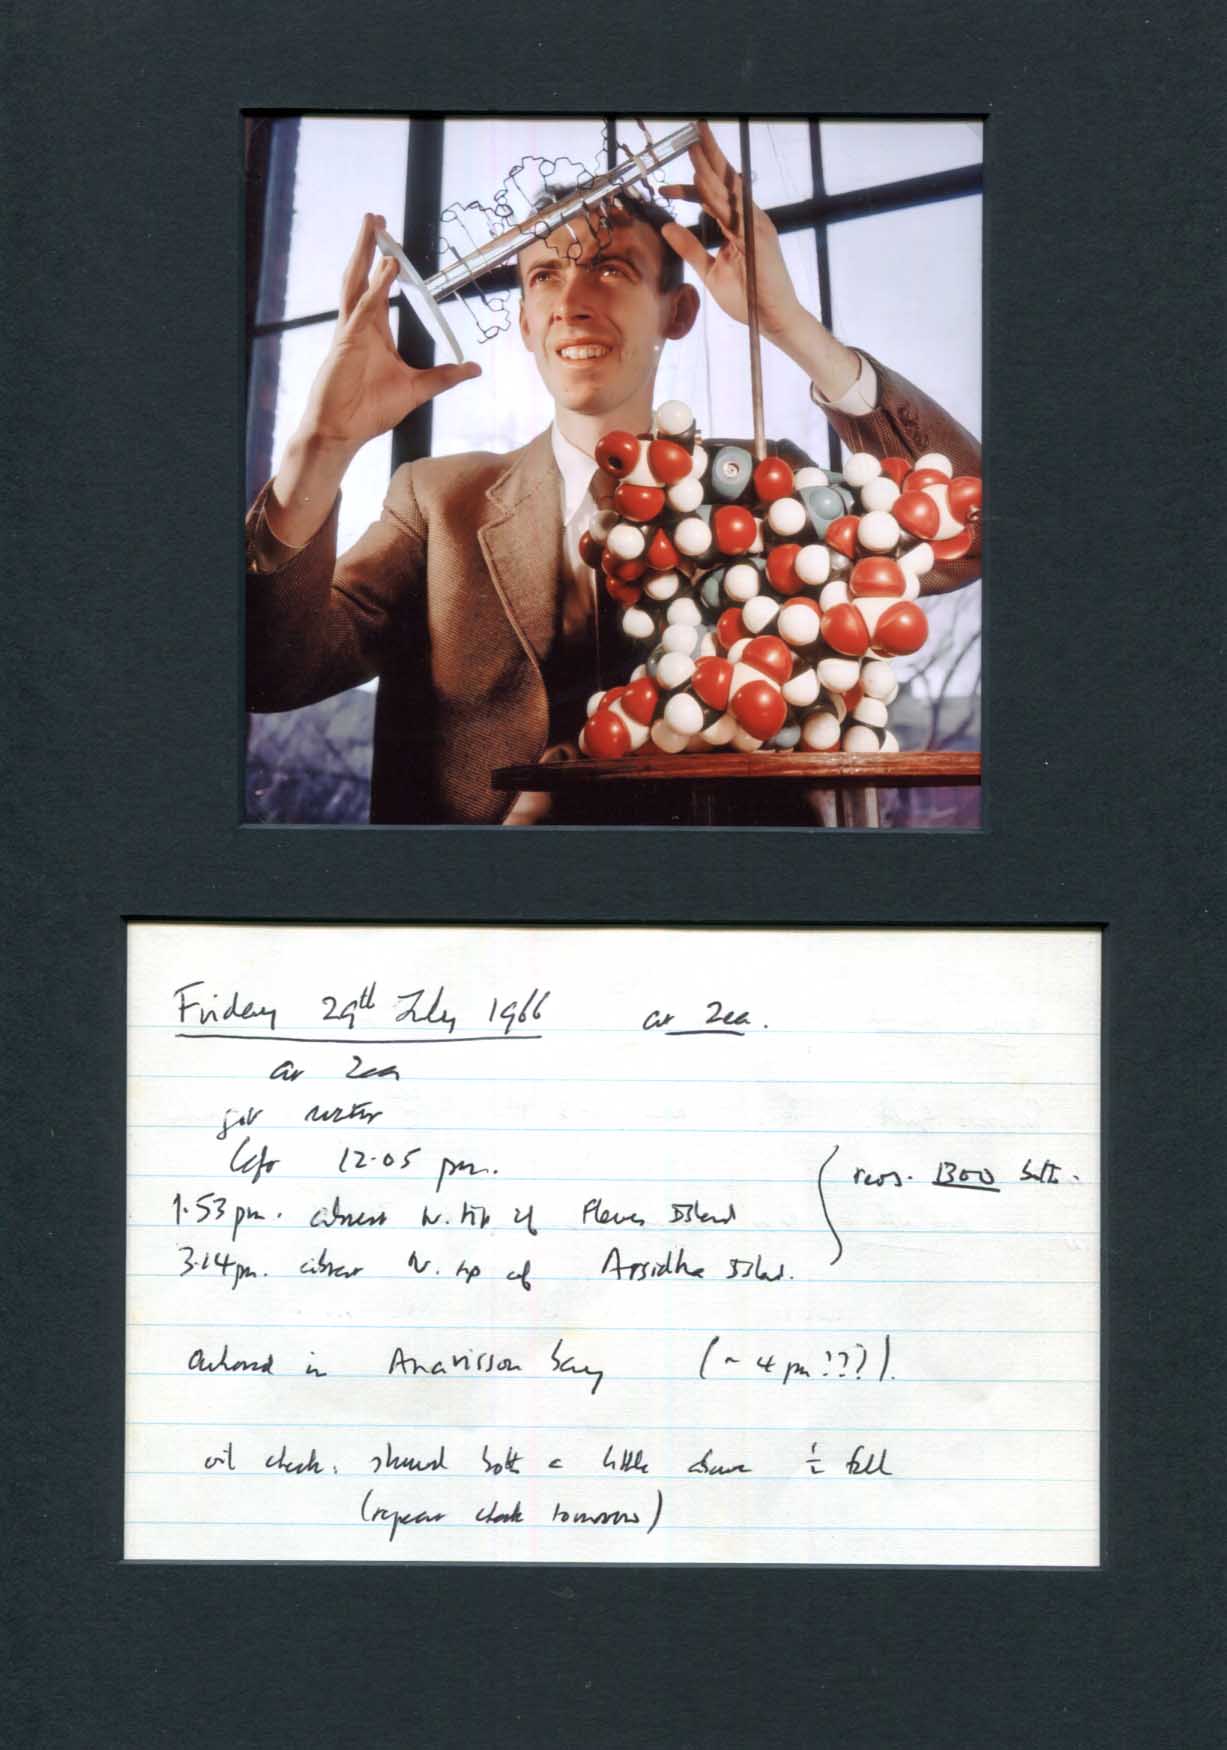 Friday 29th July 1966 at Zea.
at Zea
got water
left 12.05 pm.
1.53 pm. abeam W. tip of Fleves Island
3.14 pm. abeam W. tip of Arsidha Island.
revs. 1300 both.
anchored in Anavisson bay (~ 4 pm ???).
oil check: showed both a little above ½ full
(repeat check tomorrow)